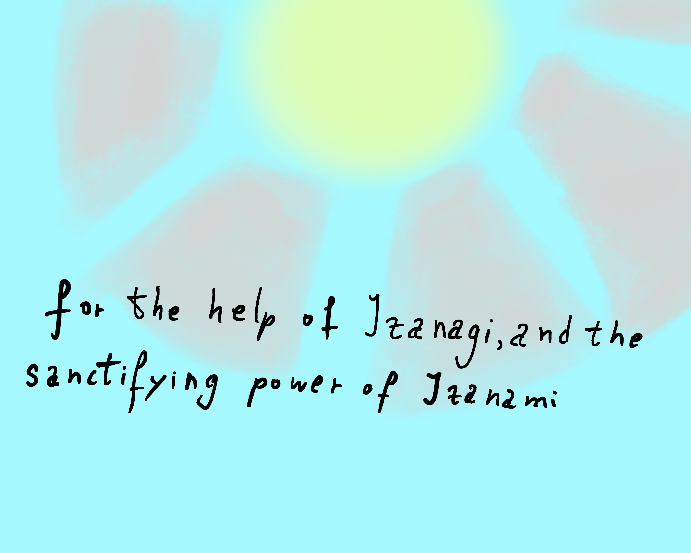 for the help of Izanagi, and the
sanctifying power of Izanami